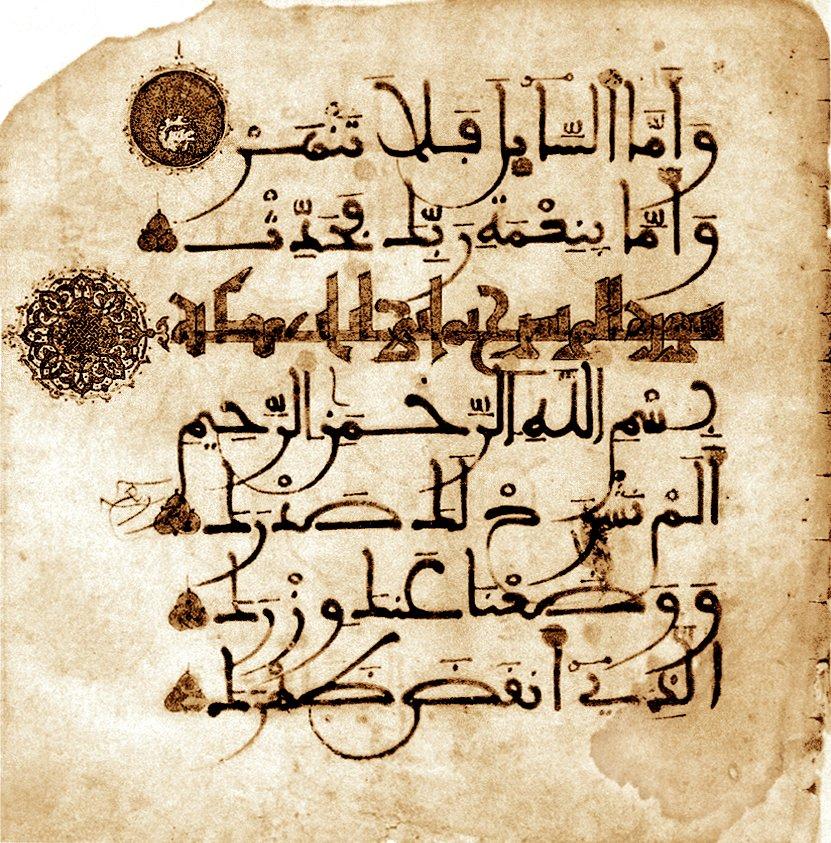 وَأَمَّا السَّائِلَ فَلَا تَنْهَرْ
وَأَمَّا بِنِعْمَةِ رَبِّكَ فَحَدِّثْ
بِسْمِ اللَّهِ الرَّحْمَٰنِ الرَّحِيمِ
أَلَمْ نَشْرَحْ لَكَ صَدْرَكَ
وَوَضَعْنَا عَنكَ وِزْرَكَ
الَّذِي أَنقَضَ ظَهْرَكَ